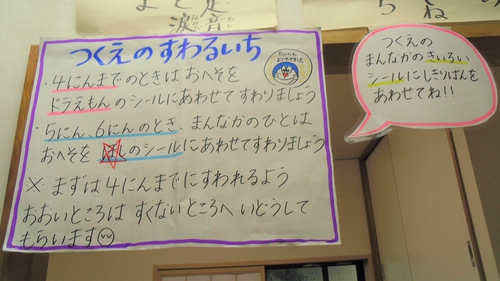 波音
ちね
つくえのすわるいち
・4にんまでのときは おへそを
ドラえもんのシールにあわせてすわりましょう
・5にん、6にんのとき、まんなかのひとは
おへそを ★のシールにあわせてすわりましょう
※ まずは4にんまでにすわれるよう
おおいところは すくないところへ いどうして
もらいます
つくえの
まんなかの きいろい
シールにしきりばんを
あわせてね!!